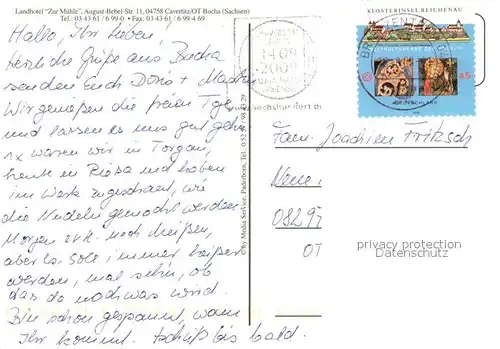 Landhotel "Zur Mühle", August-Bebel-Str. 11, 04758 Cavertitz/OT Bucha (Sachsen)
Tel.: 03 43 61 / 6 99-0 • Fax: 03 43 61 / 6 99-4 69
Hallo, Ihr Lieben,
herzliche Grüße aus Bucha
senden Euch Doris +
Wir genießen die freien Tage
und lassen es uns gut gehn.
1x waren wir in Torgau,
heute in Riesa und haben
im Werk zugeschaut, wie
die Nudeln gemacht werden.
Morgen evt. nach Meißen,
aber es soll immer heißer
werden, mal sehn, ob
das da noch was wird.
Bin schon gespannt, wann
Ihr kommt. Tschüß bis bald.
© by Media Service, Paderborn, Tel.: 0 52
BRIEFZENTRUM
KLOSTERINSEL REICHENAU
WELTKULTURERBE DER UNESCO
45
DEUTSCHLAND
Fam. Joachim Fritzsch
0829
OT
privacy protection
Datenschutz